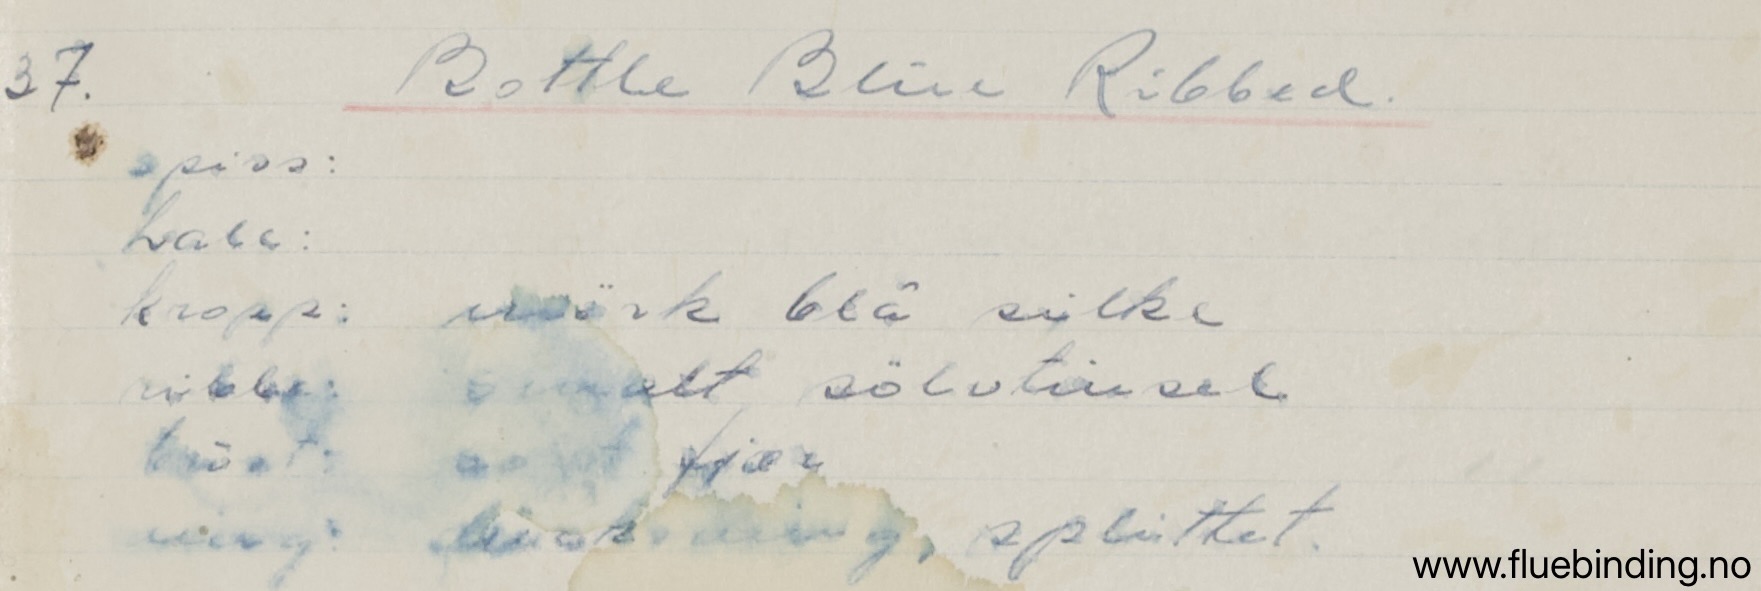 37. Bottle Blue Ribbed.
spiss:
hale:
kropp: mörk blå silke
ribbe: smalt sölvtinsel
bröst: sort fjær
ving: splittet.
www.fluebinding.no